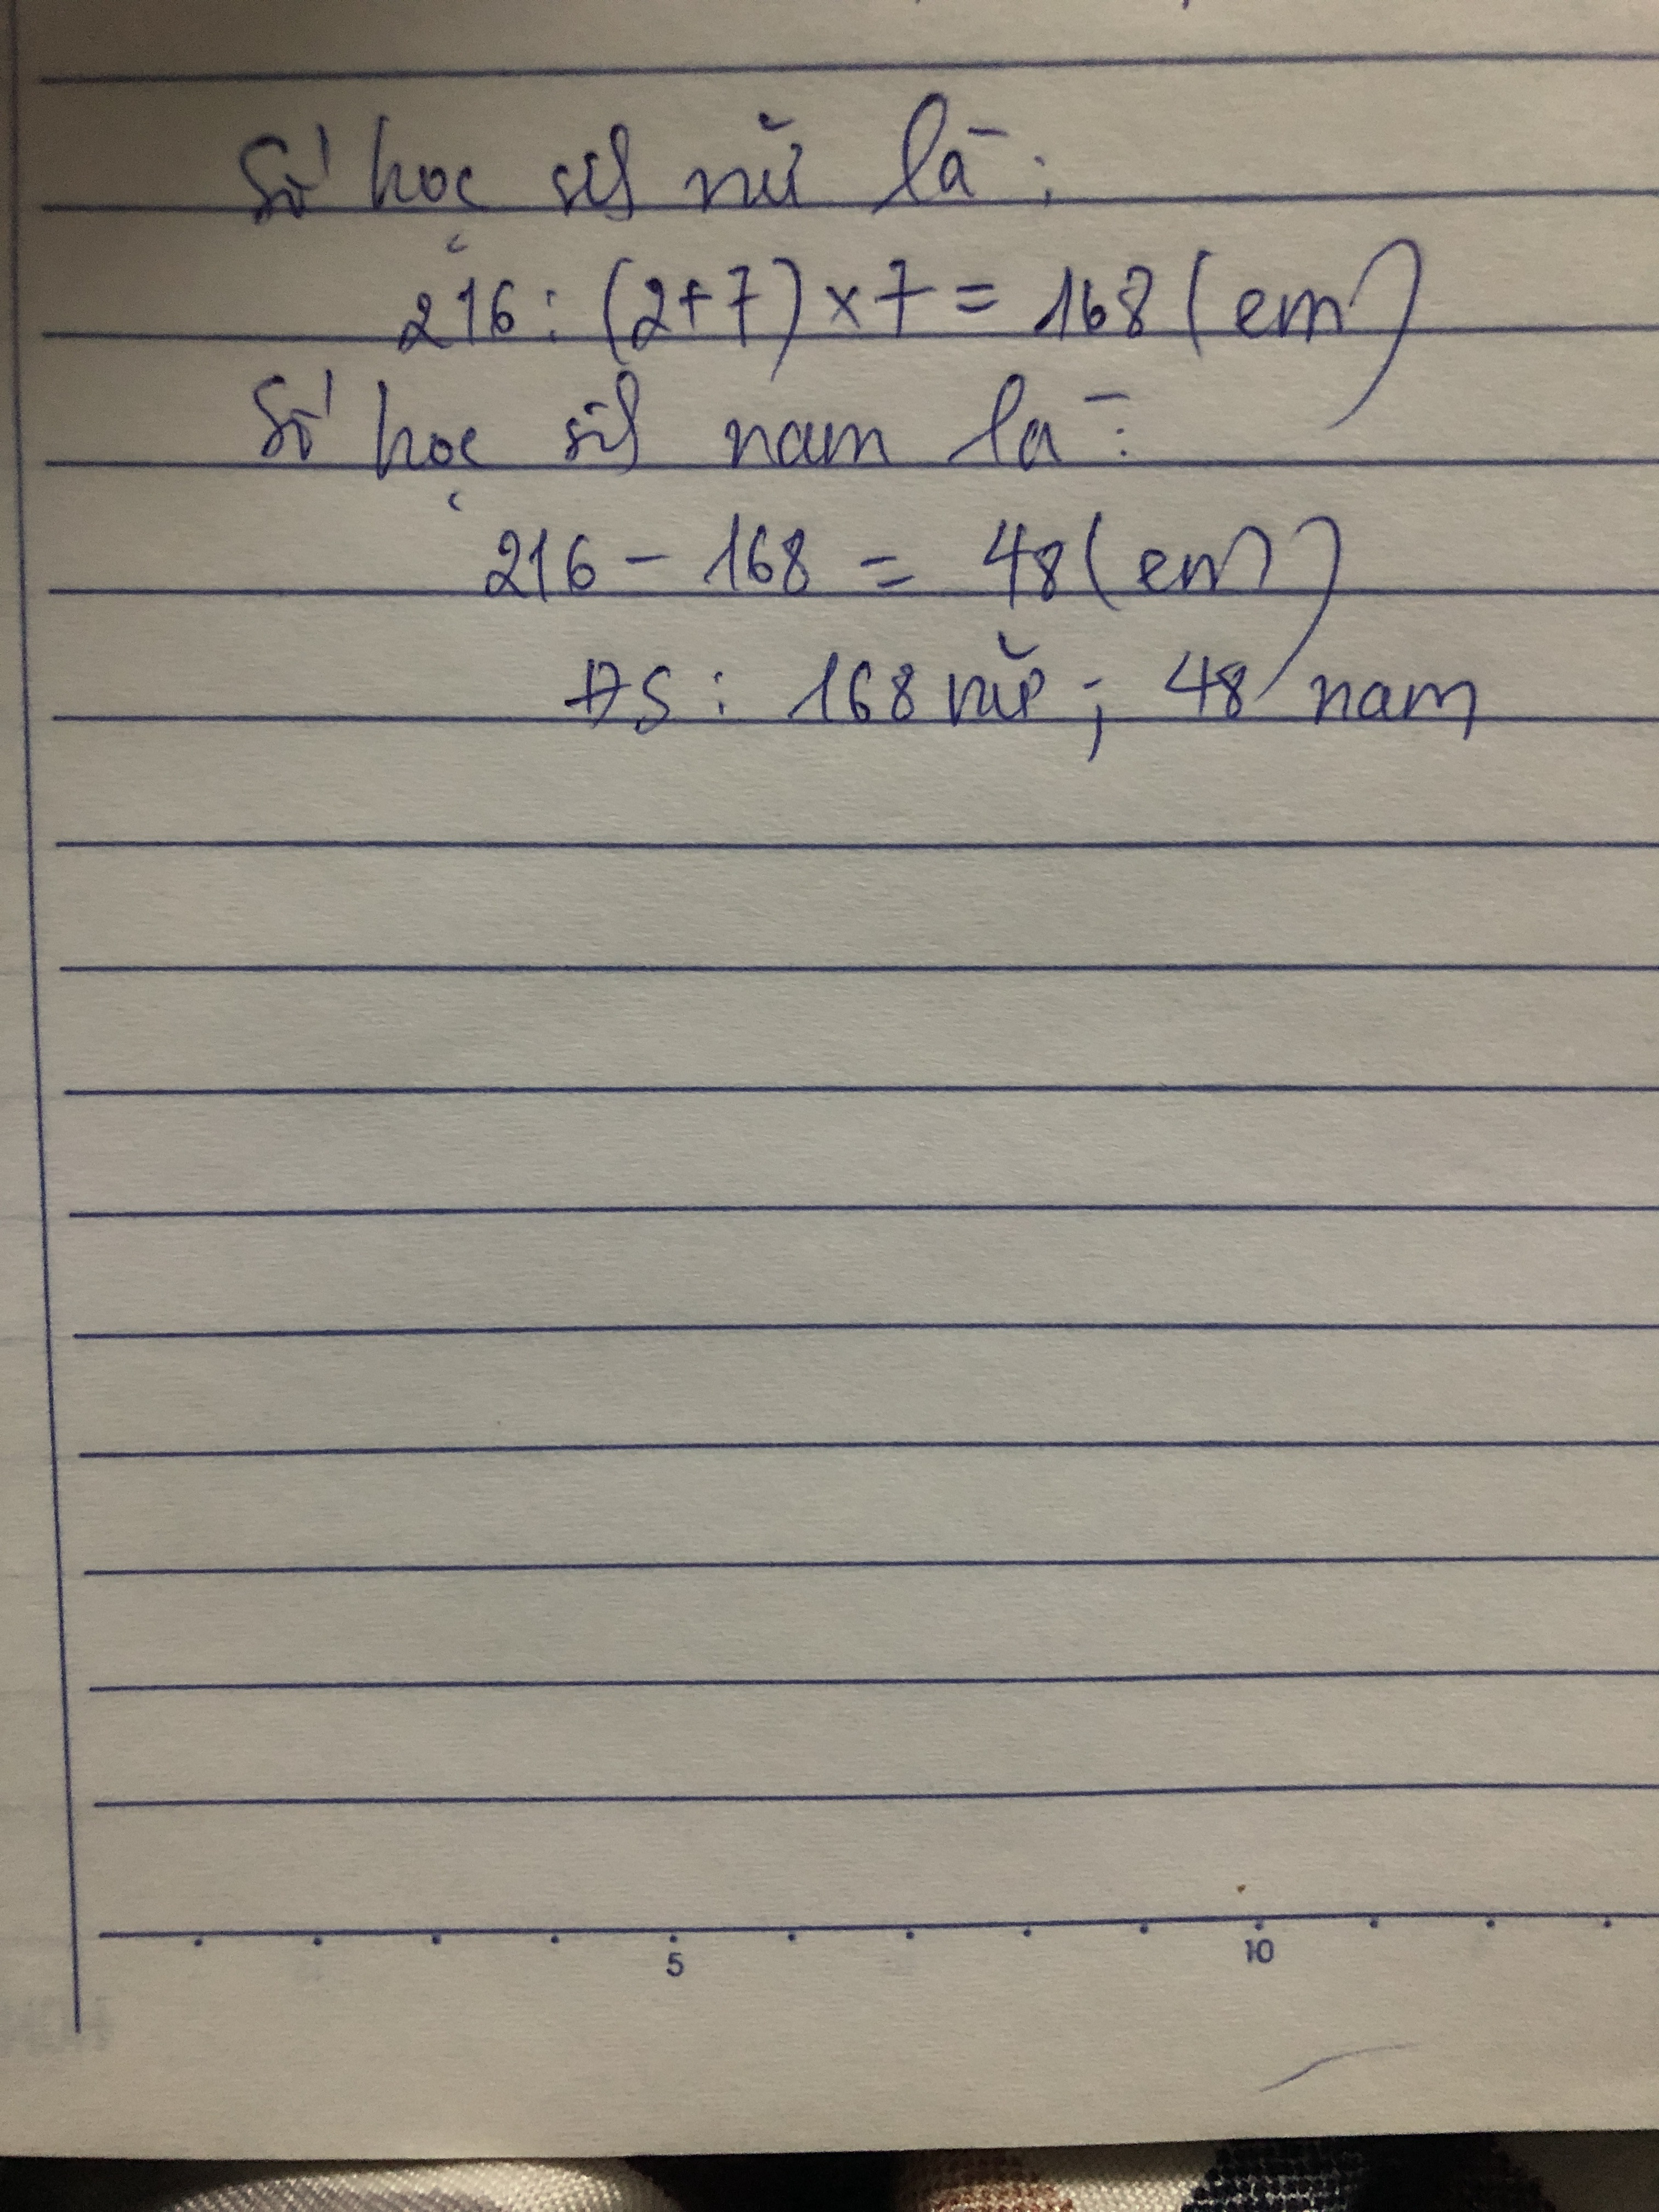 Số học sinh nữ là:
216 : (2+7) x 7 = 168 (em)
Số học sinh nam là:
216 - 168 = 48 (em)
ĐS: 168 nữ; 48 nam
5 10